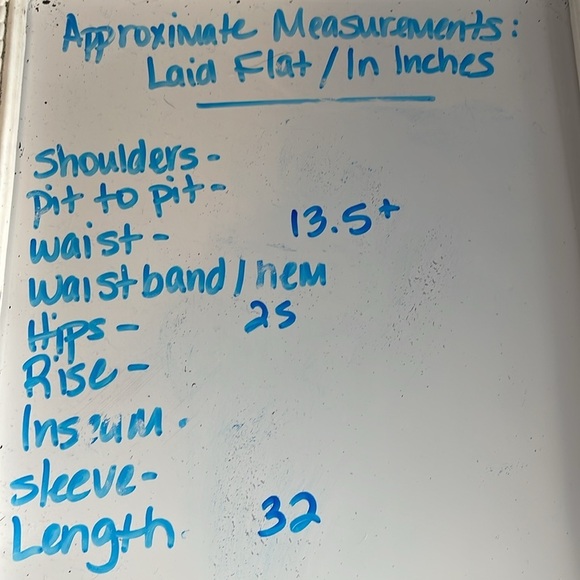 Approximate Measurements:
Laid Flat / In Inches
Shoulders -
pit to pit -
waist - 13.5+
waistband / hem
Hips - 25
Rise -
Inseum.
sleeve -
Length. 32